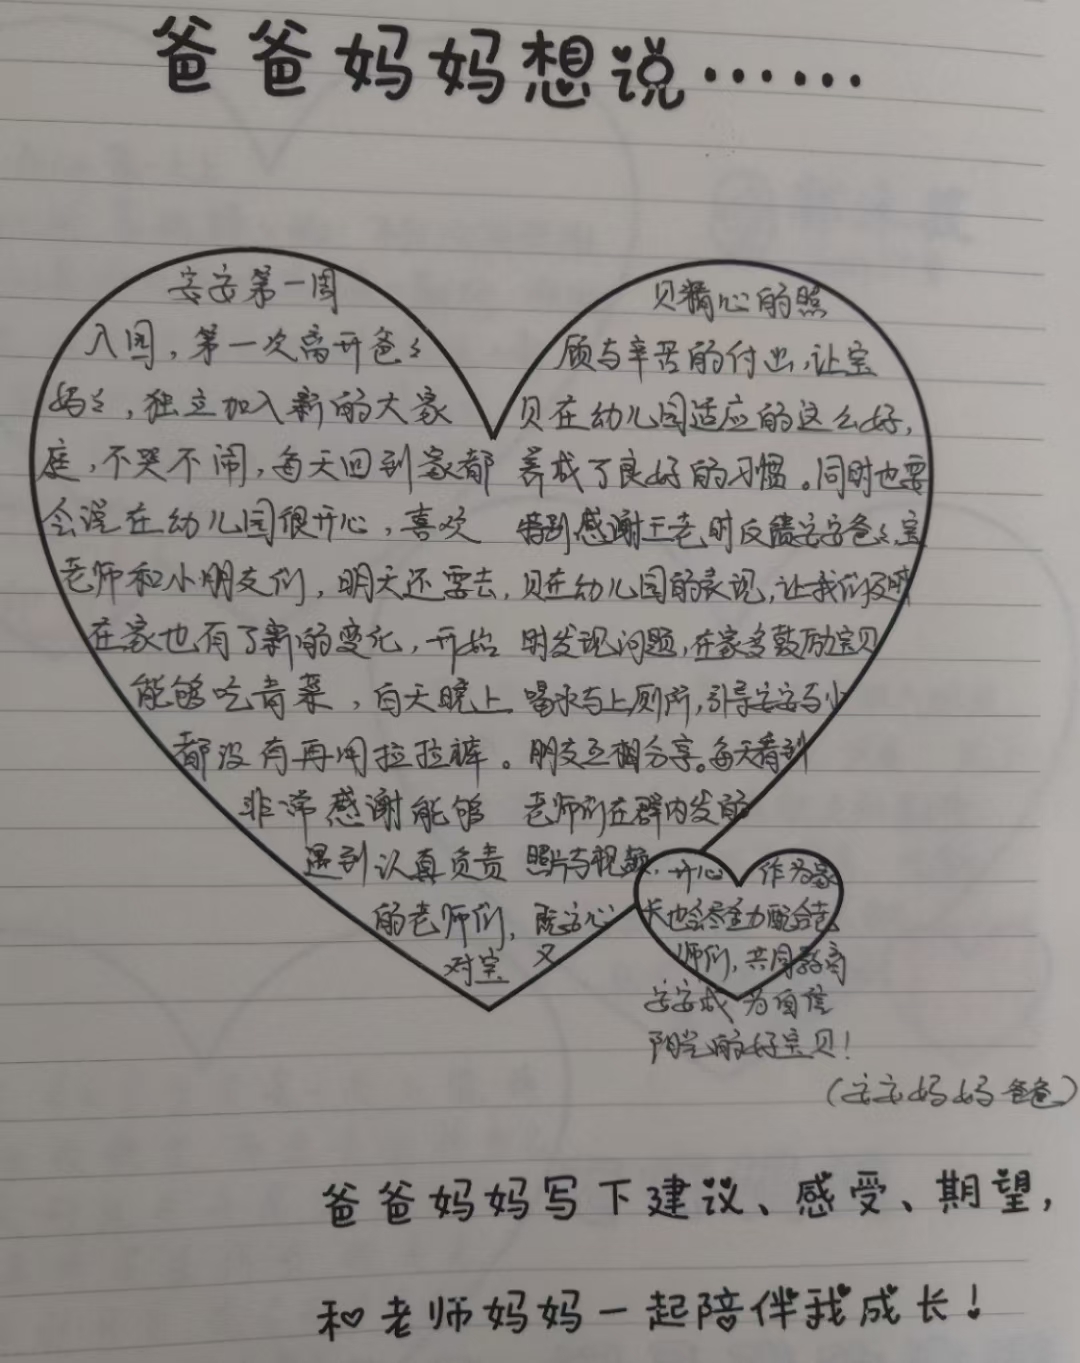 爸爸妈妈想说……
安安第一周
入园，第一次离开爸々
妈々，独立加入新的大家
庭，不哭不闹，每天回到家都
会说在幼儿园很开心，喜欢
老师和小朋友们，明天还要去，
在家也有了新的变化，开始
能够吃青菜，白天晚上
都没有再用拉拉裤。
非常感谢能够
遇到认真负责
的老师们，
对宝
贝精心的照
顾与辛苦的付出，让宝
贝在幼儿园适应的这么好，
养成了良好的习惯。同时也要
特别感谢王老时反馈安安爸々，宝
贝在幼儿园的表现，让我们及时
时发现问题，在家多鼓励宝贝
喝水与上厕所，引导安安与小
朋友互相分享。每天看到
老师们在群内发的
照片与视频，
安心
又
开心 作为家
长也会尽全力配合老
师们，共同教育
安安成为自信
阳光的好宝贝！
（安安妈妈爸爸）
爸爸妈妈写下建议、感受、期望，
和老师妈妈一起陪伴我成长！